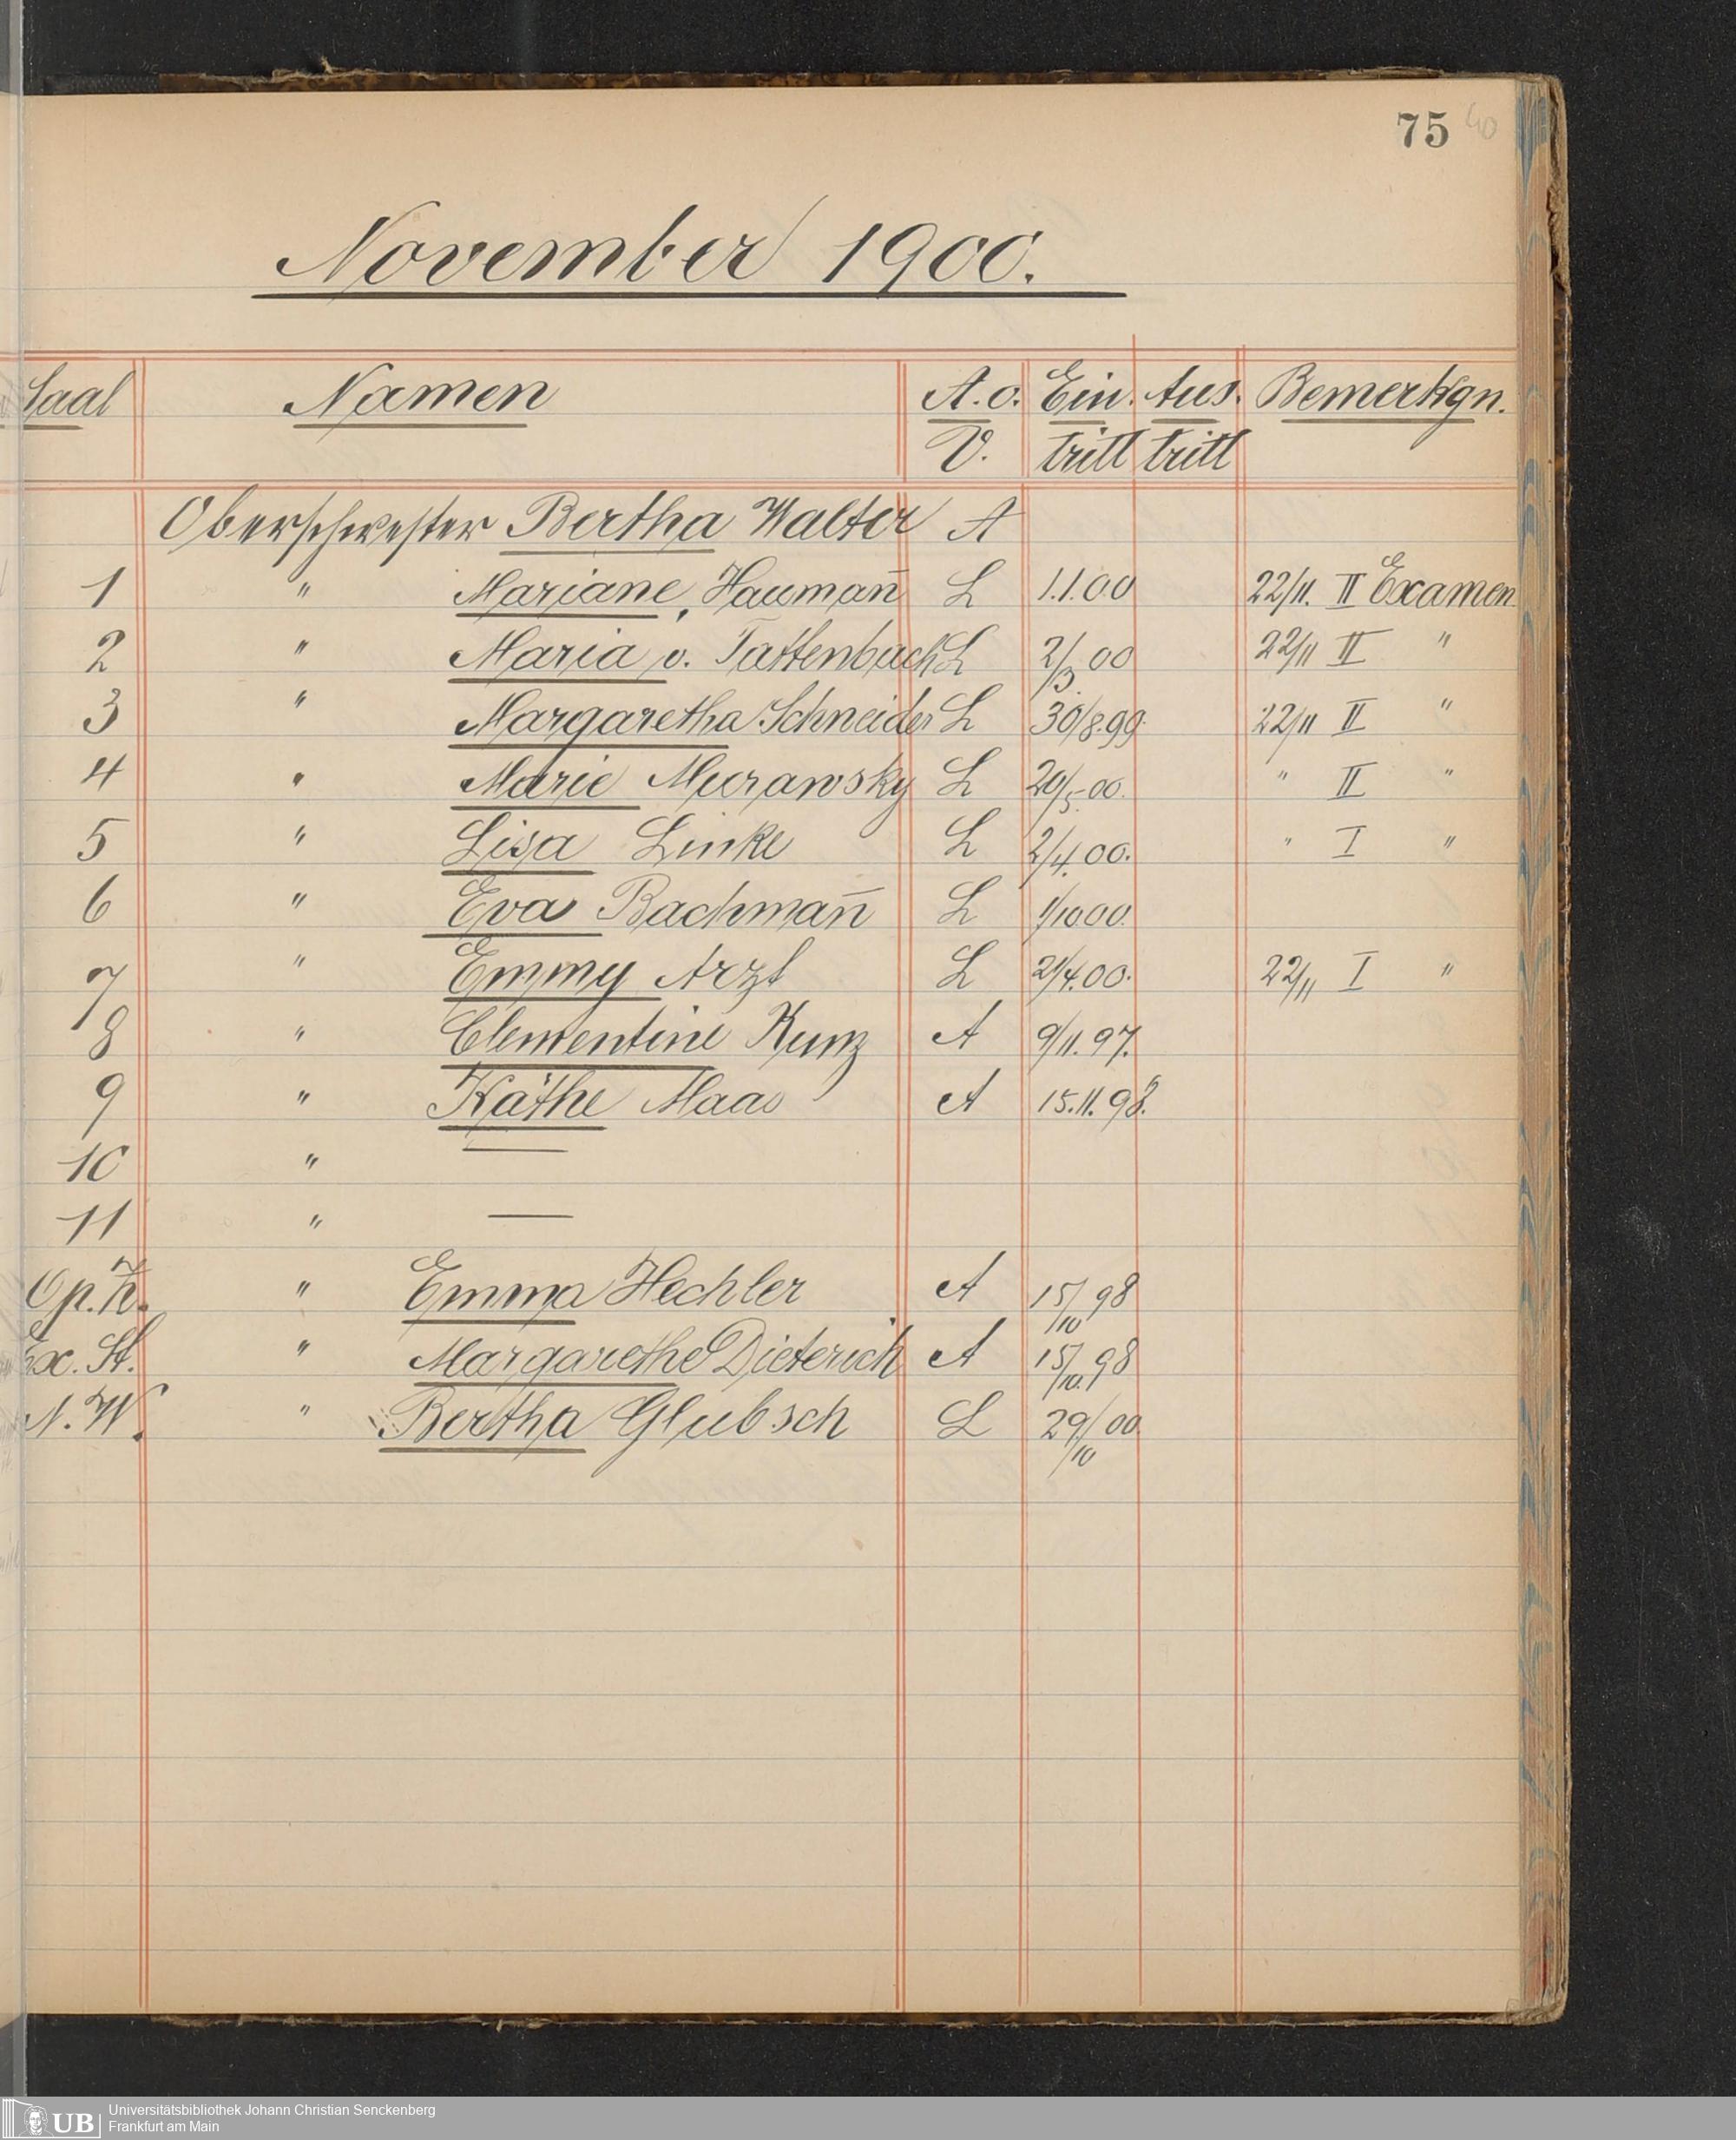 75 40
November 1900.
Saal Namen A.o. Ein. Aus. Bemerkgn.
V. tritt tritt
Oberschwester Bertha Walter A
1 " Mariane Haumañ L 1.1.00 22/11. II Examen
2 " Maria v. Tattenbach L 2/3. 00 22/11 II "
3 " Margaretha Schneider L 30/8.99. 22/11 II "
4 " Marie Murawsky L 20/5.00. " II "
5 " Lisa Linke L 2/4.00. " I "
6 " Eva Bachmañ L 1/10.00.
7 " Emmy Arzt L 21/4.00. 22/11 I "
8 " Clementine Kunz A 9/11.97.
9 " Käthe Maas A 15.11.98.
10 " —
11 " —
Op. Z. " Emma Hechler A 15/10 98
Ex. St. " Margarethe Dieterich A 15/10. 98
N. W. " Bertha Glubsch L 29/10 00.
UB Universitätsbibliothek Johann Christian Senckenberg
Frankfurt am Main